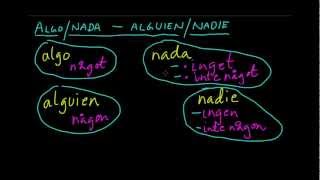 ALGO/NADA — ALGUIEN/NADIE
algo
något
nada
- • inget
- • inte något
alguien
någon
nadie
- ingen
- inte någon